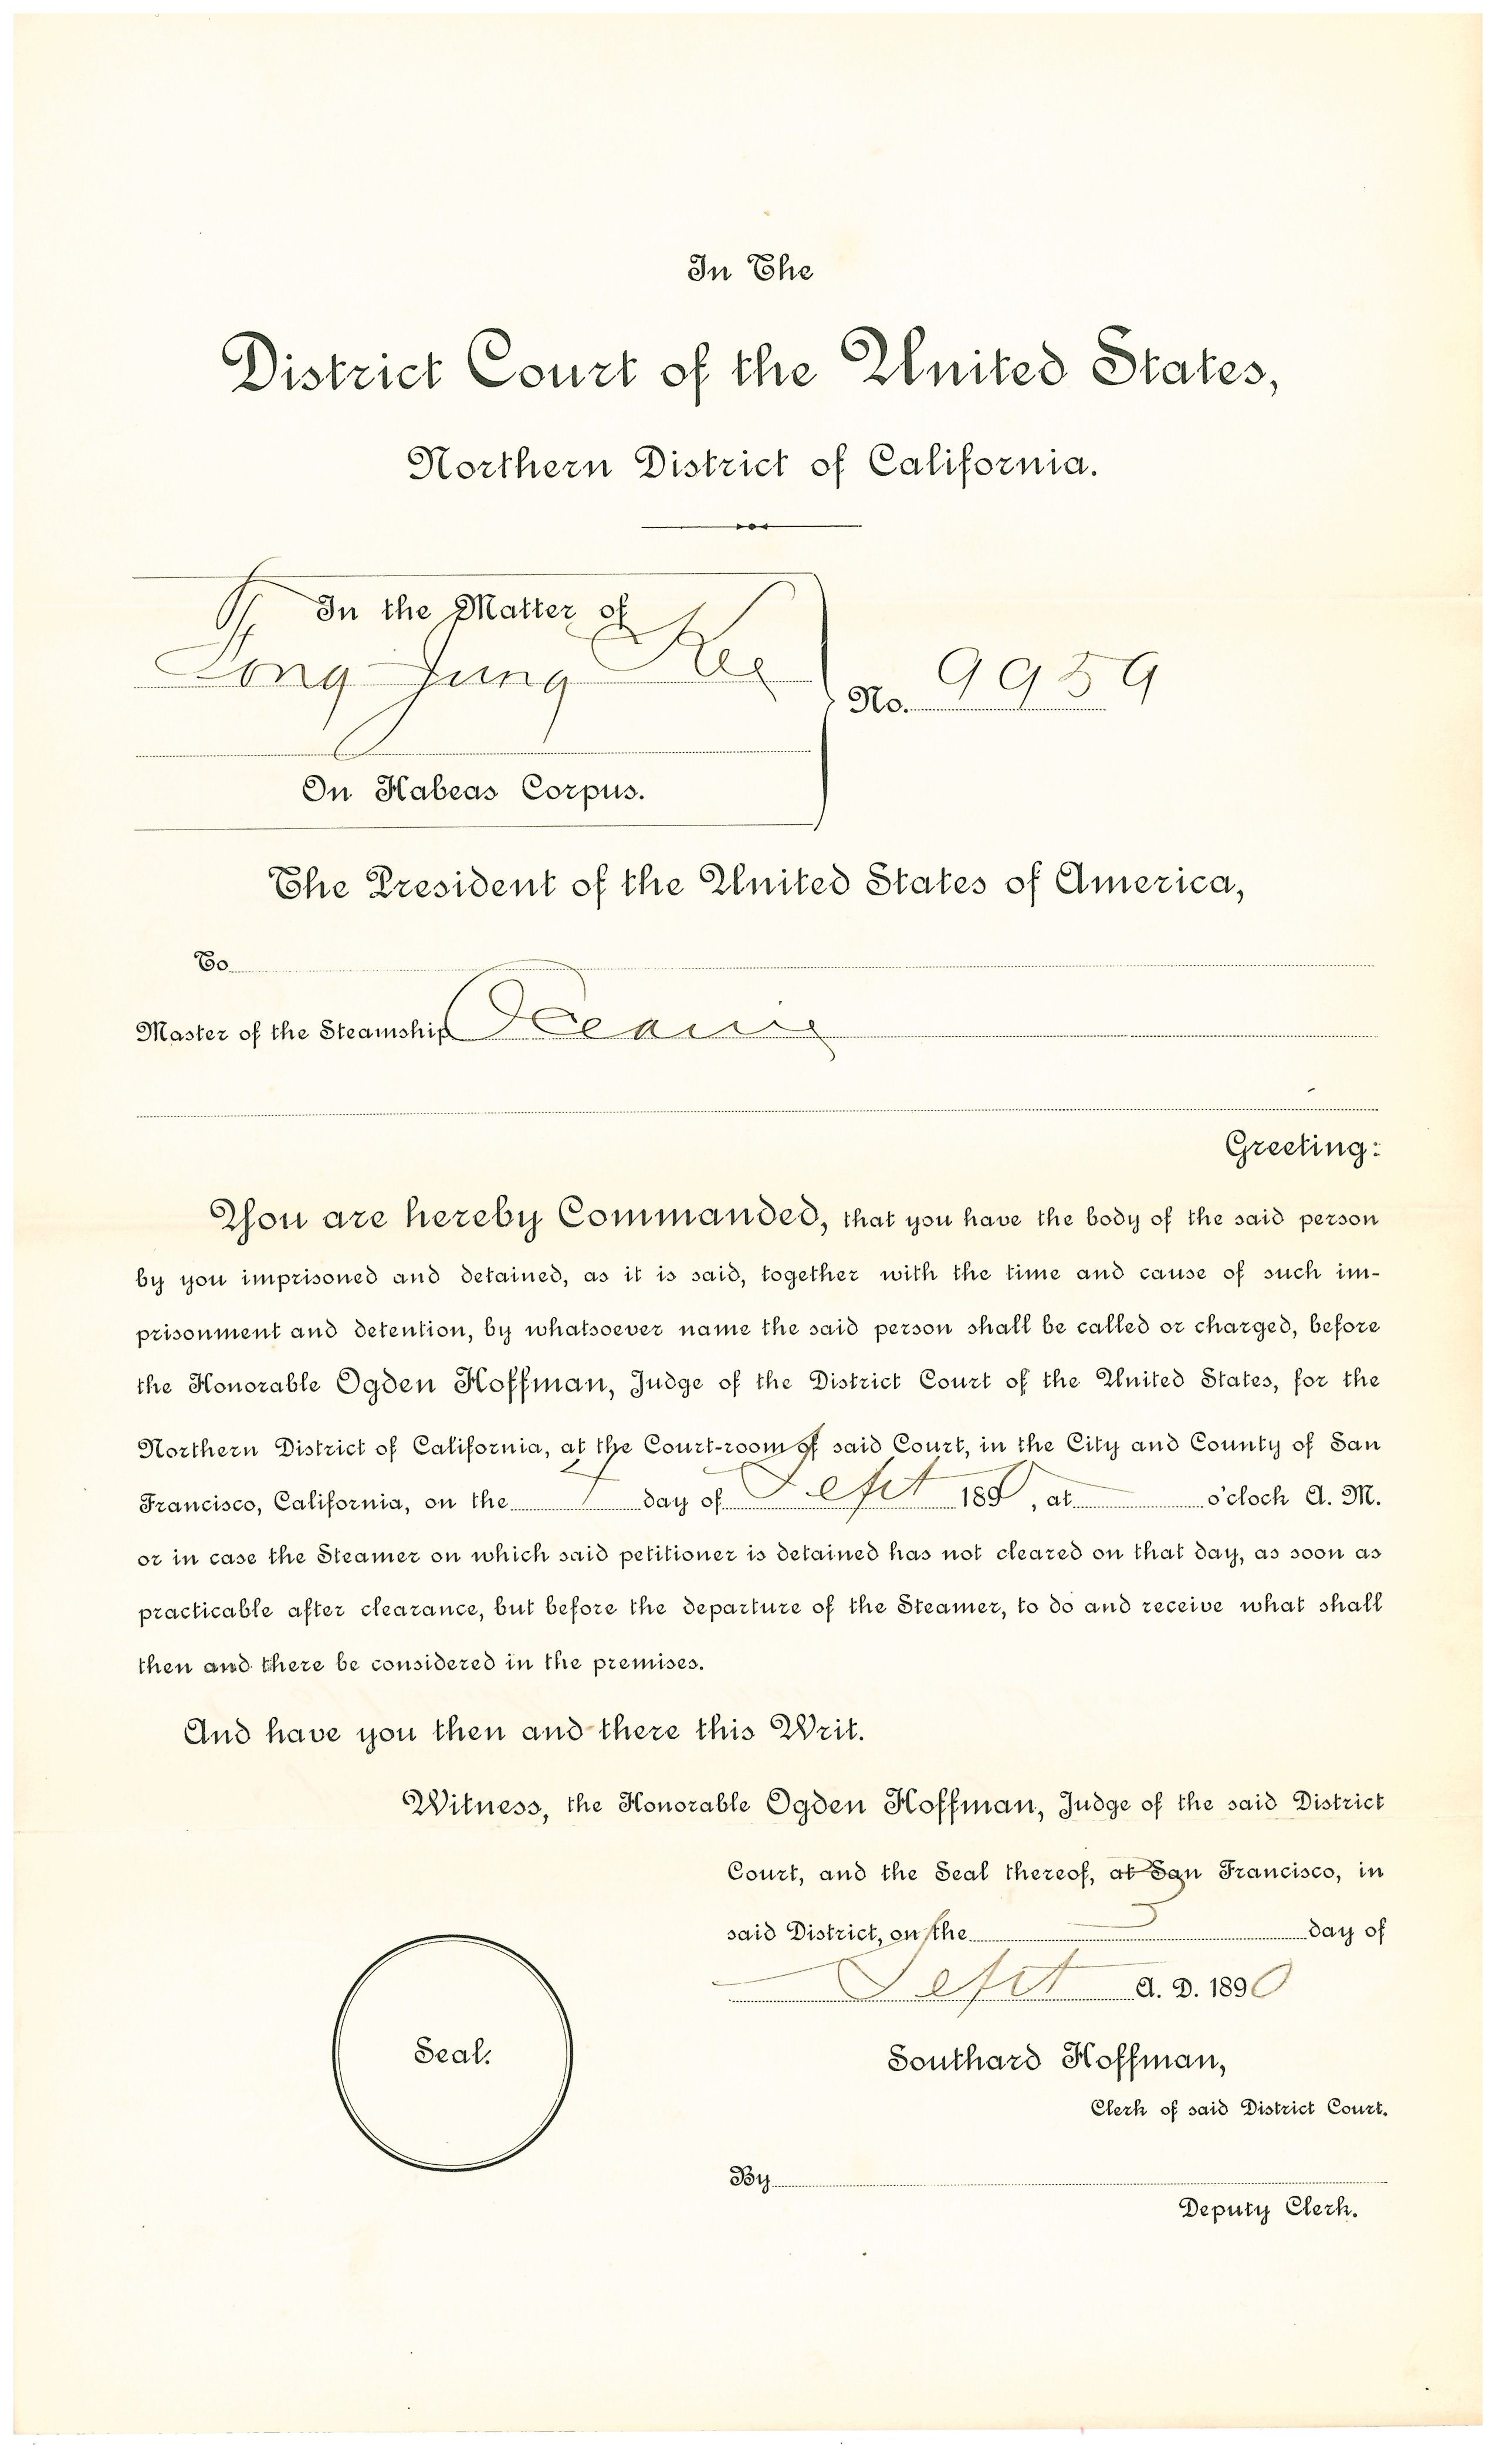 In The
District Court of the United States,
Northern District of California.
In the Matter of
Fong Jung Kee
No. 9959
On Habeas Corpus.
The President of the United States of America,
To
Master of the Steamship Oceanic
Greeting:
You are hereby Commanded, that you have the body of the said person
by you imprisoned and detained, as it is said, together with the time and cause of such im-
prisonment and detention, by whatsoever name the said person shall be called or charged, before
the Honorable Ogden Hoffman, Judge of the District Court of the United States, for the
Northern District of California, at the Court-room of said Court, in the City and County of San
Francisco, California, on the day of Sept 1890, at o'clock A. M.
or in case the Steamer on which said petitioner is detained has not cleared on that day, as soon as
practicable after clearance, but before the departure of the Steamer, to do and receive what shall
then and there be considered in the premises.
And have you then and there this Writ.
Witness, the Honorable Ogden Hoffman, Judge of the said District
Court, and the Seal thereof, at San Francisco, in
said District, on the 5 day of
Sept A. D. 1890
Seal.
Southard Hoffman,
Clerk of said District Court.
By
Deputy Clerk.